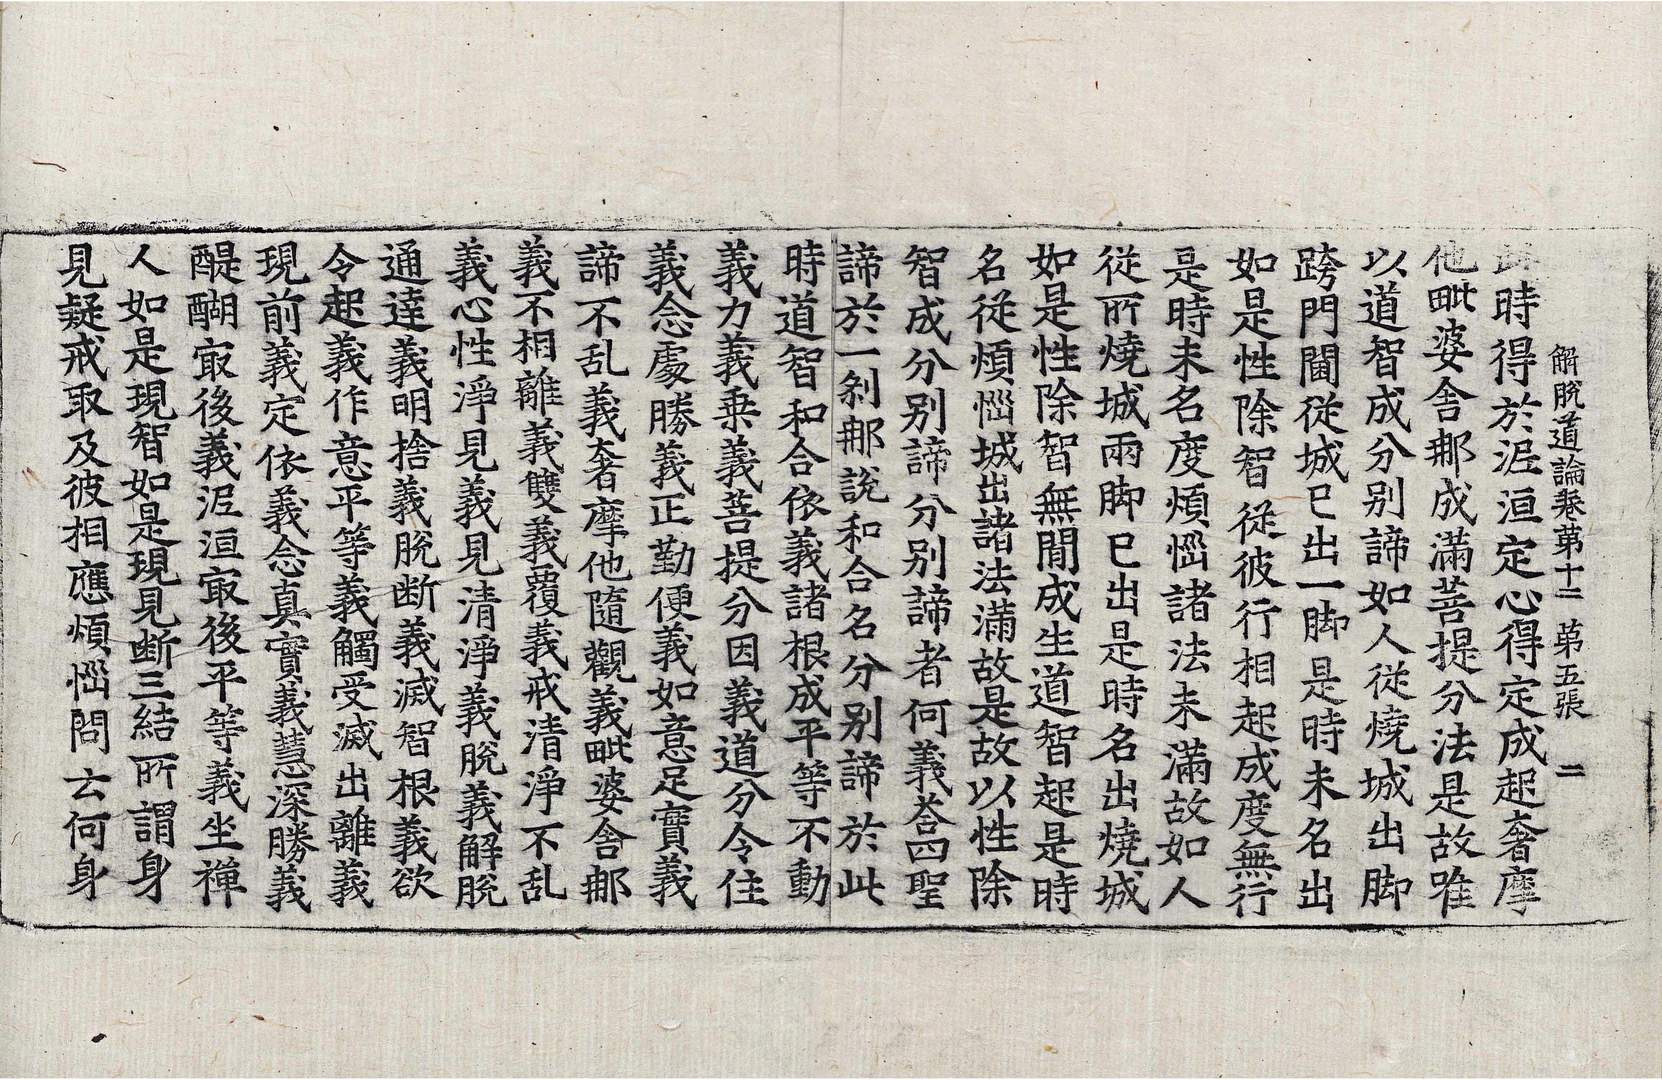 解脫道論卷第十二　第五張　二
此時得於泥洹定心得定成起奢摩
他毗婆舍那成滿菩提分法是故唯
以道智成分别諦如人從燒城出脚
跨門閫從城已出一脚是時未名出
如是性除智從彼行相起成度無行
是時未名度煩惱諸法未滿故如人
從所燒城兩脚已出是時名出燒城
如是性除智無間成生道智起是時
名從煩惱城出諸法滿故是故以性除
智成分别諦分别諦者何義荅四聖
諦於一刹那說和合名分别諦於此
時道智和合依義諸根成平等不動
義力義乗義菩提分因義道分令住
義念處勝義正勤便義如意足實義
諦不乱義奢摩他隨觀義毗婆舍那
義不相離義雙義覆義戒清淨不乱
義心性淨見義見清淨義脫義解脫
通達義明捨義脫断義滅智根義欲
令起義作意平等義觸受滅出離義
現前義定依義念真實義慧深勝義
醍醐㝡後義泥洹㝡後平等義坐禪
人如是現智如是現見断三結所謂身
見疑戒取及彼相應煩惱問云何身